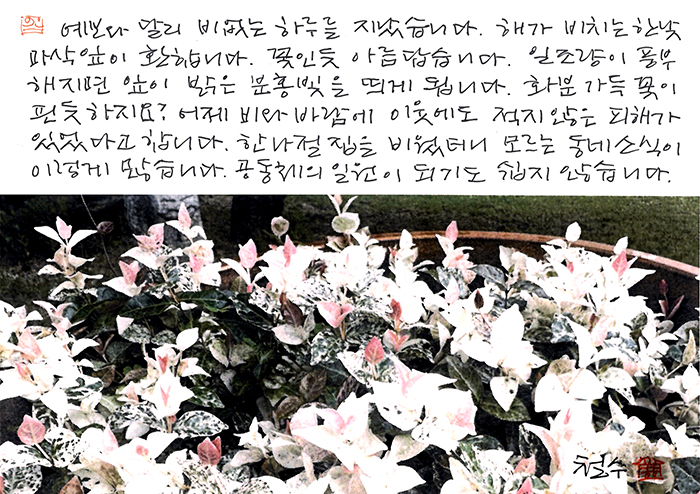 예보와 달리 비없는 하루를 지냈습니다. 해가 비치는 한낮
마삭잎이 환합니다. 꽃인듯 아름답습니다. 일조량이 풍부
해지면 잎이 밝은 분홍빛을 띄게 됩니다. 화분 가득 꽃이
핀듯 하지요? 어제 비와 바람에 이웃에도 적지 않은 피해가
있었다고 합니다. 한나절 집을 비웠더니 모르는 동네소식이
이렇게 많습니다. 공동체의 일원이 되기도 쉽지 않습니다.
철수